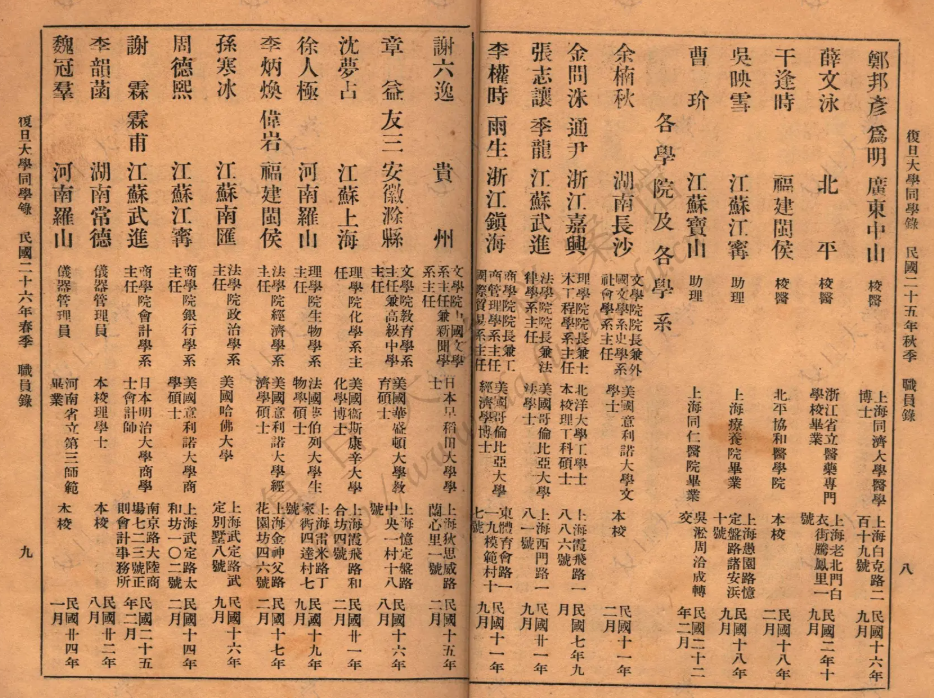 復旦大學同學錄 民國二十五年秋季 職員錄
八
鄭邦彥 爲明 廣東中山 校醫 上海同濟大學醫學博士 上海白克路二百十九號 民國十六年九月
薛文泳 北平 校醫 浙江省立醫藥專門學校畢業 上海老北門白衣街騰鳳里一號 民國二年十九月
干逢時 福建閩侯 校醫 北平協和醫學院 本校 民國十八年二月
吳映雪 江蘇江寗 助理 上海療養院畢業 上海愚園路憶定盤路諸安浜十號 民國十八年九月
曹玠 江蘇寶山 助理 上海同仁醫院畢業 吳淞周洽成轉交 民國二十二年二月
各學院及各學系
余楠秋 湖南長沙 文學院院長兼外國文學系史學系社會學系主任 美國意利諾大學文學士 本校 民國十一年二月
金問洙 通尹 浙江嘉興 理學院院長兼土木工程學系主任 北洋大學工學士本校理工科碩士 上海霞飛路一八八六號 民國七年九月
張志讓 季龍 江蘇武進 法學院院長兼法律學系主任 美國哥倫比亞大學法學士 上海西門路一八一號 民國廿一年九月
李權時 雨生 浙江鎮海 商學院院長兼工商管理學系主任國際貿易系主任 美國哥倫比亞大學經濟學博士 東體育會路一一九模範村十七號 民國十一年九月
謝六逸 貴州 文學院中國文學系主任兼新聞學系主任 日本早稻田大學學士 上海狄思威路蘭心里一號 民國十五年二月
章益 友三 安徽滁縣 文學院教育學系主任兼高級中學主任 美國華盛頓大學教育碩士 上海憶定盤路中央一村十八號 民國十六年八月
沈夢占 江蘇上海 理學院化學系主任 美國衞斯康辛大學化學博士 上海霞飛路和合坊四號 民國廿一年二月
徐人極 河南羅山 理學院生物學系主任 法國伯列大學生物學碩士 上海雷米路丁家衖四達村七號 民國十九年九月
李炳煥 偉岩 福建閩侯 法學院經濟學系主任 美國意利諾大學經濟學碩士 上海金神父路花園坊四六號 民國十七年二月
孫寒冰 江蘇南匯 法學院政治學系主任 美國哈佛大學 上海武定路武定別墅八號 民國十六年九月
周德熙 江蘇江寗 商學院銀行學系主任 美國意利諾大學商學碩士 上海武定路太和坊一〇二號 民國十四年二月
謝霖 霖甫 江蘇武進 商學院會計學系主任 日本明治大學商學士會計師 南京路大陸商場七二三號正則會計事務所 民國二十五年二月
李韻菡 湖南常德 儀器管理員 本校理學士 本校 民國廿二年八月
魏冠羣 河南羅山 儀器管理員 河南省立第三師範畢業 本校 民國廿四年一月
復旦大學同學錄 民國二十六年春季 職員錄
九